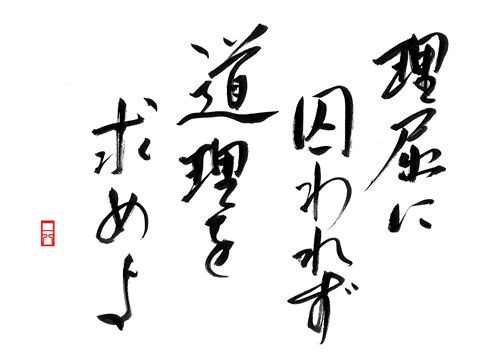 理屈に
囚われず
道理を
求めよ